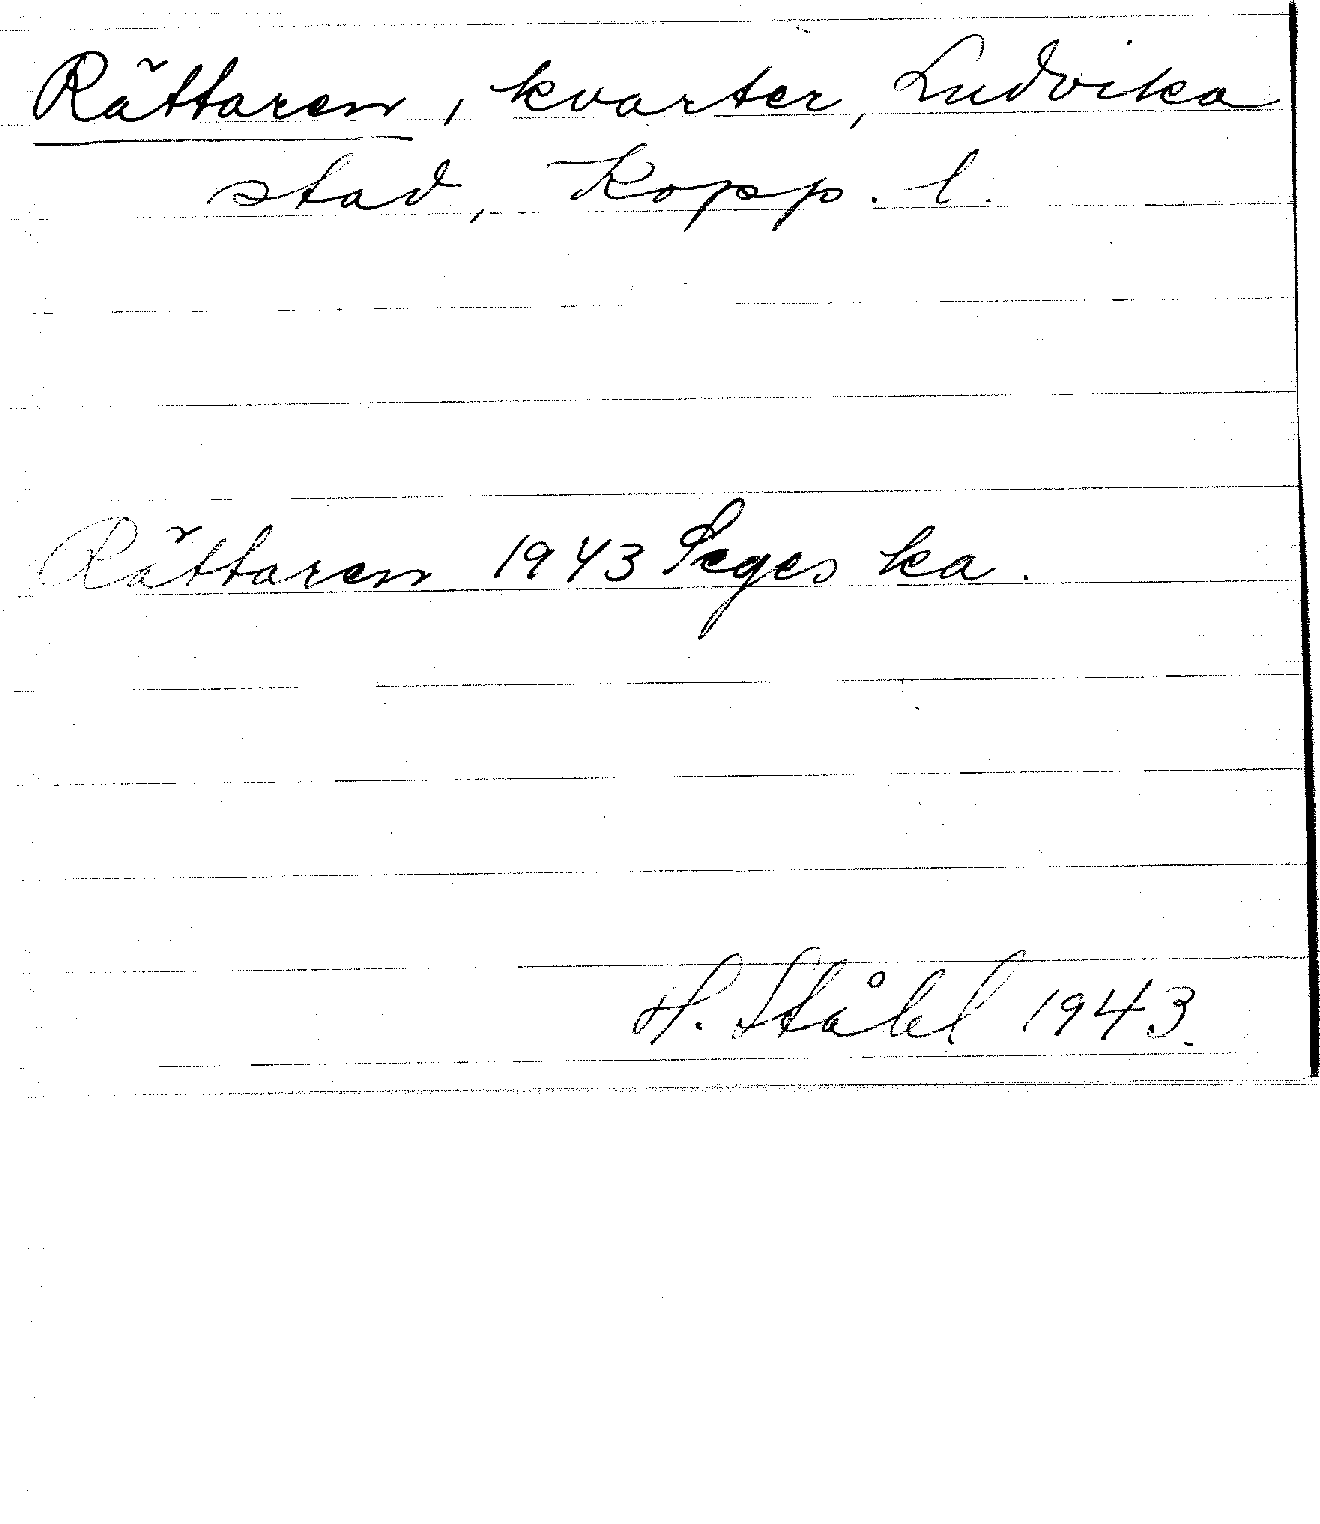 Rättaren, kvarter, Ludvika
stad, Kopp. l.
Rättaren 1943 Seges ka.
H. Ståhl 1943.